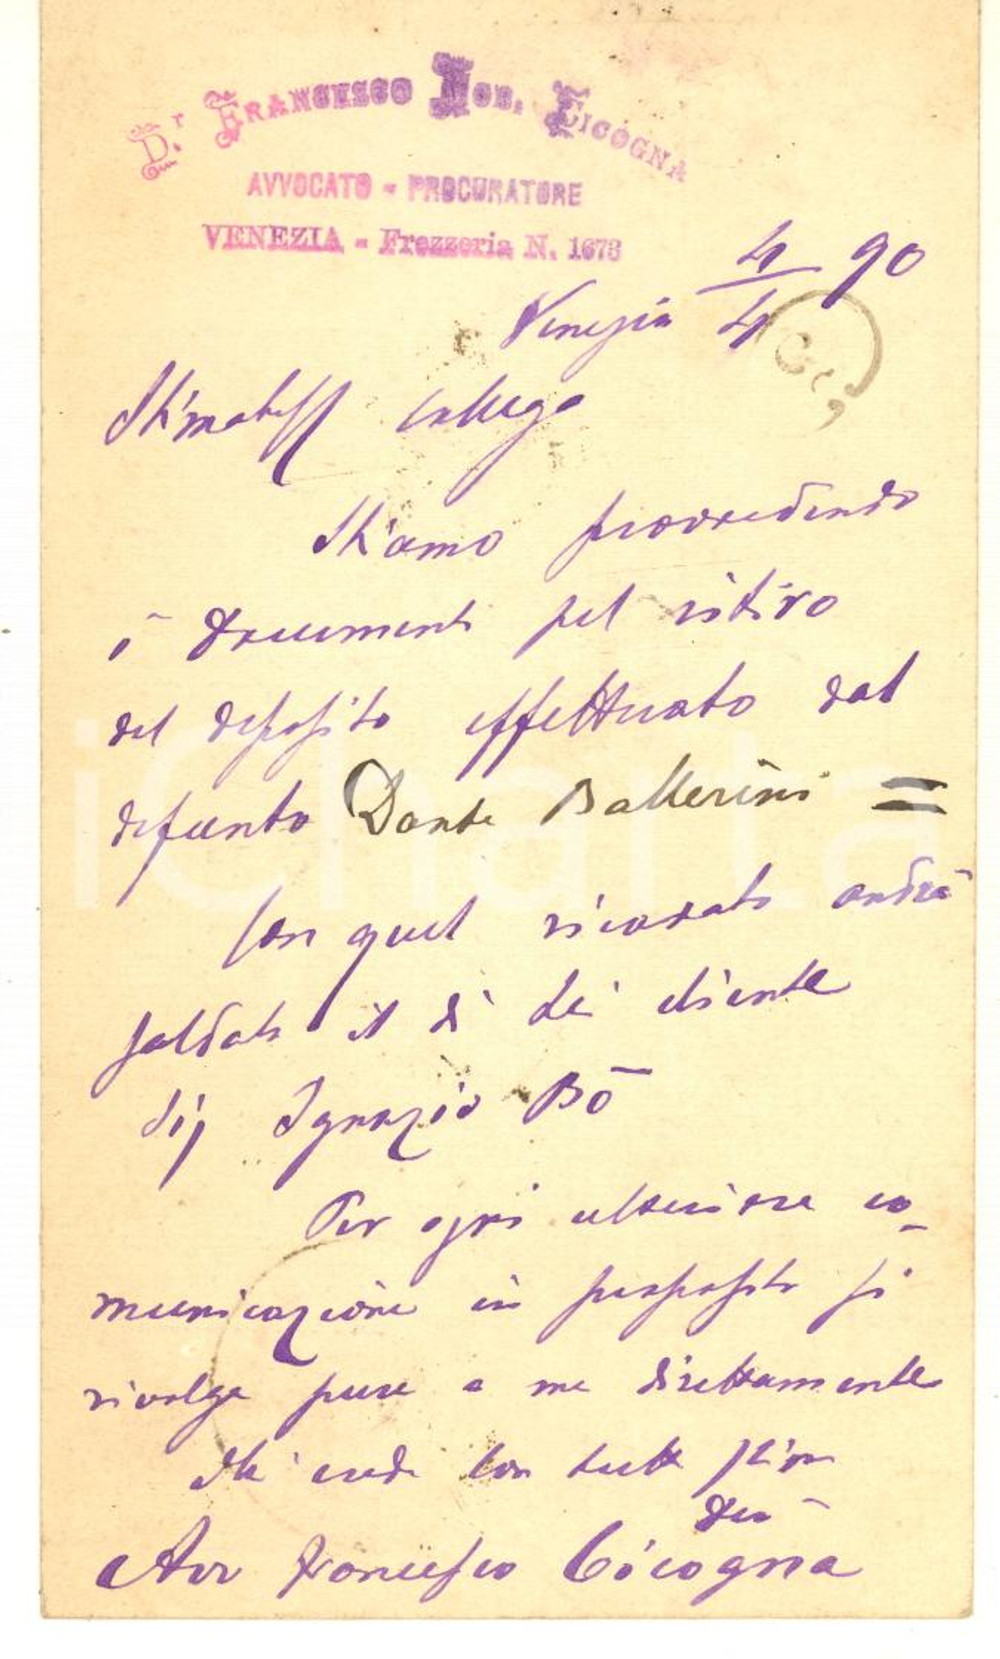 D.r Francesco Nob. Cicogna
AVVOCATO - PROCURATORE
VENEZIA - Frezzeria N. 1673
4 90
Venezia 4
Stimatiss Collega
Stiamo provvedendo
i documenti pel ritiro
del deposito effettuato dal
defunto Dante Ballerini =
Con quel ricavato andrà
saldato il di Lei cliente
Sig Ignazio Bō
Per ogni ulteriore co-
municazione in proposito si
rivolga pure a me direttamente
Mi creda con tutta stima
Avv Francesco Cicogna
iCharta